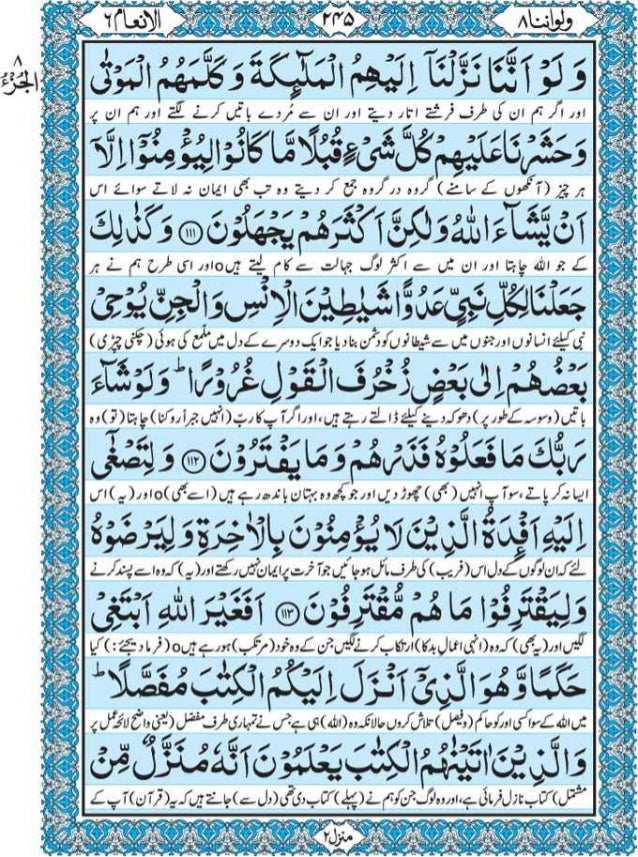 ولواننا ٨
٢٤٥
الانعام ٦
٨
الجزء
وَ لَوْ اَنَّنَا نَزَّلْنَاۤ اِلَیْهِمُ الْمَلٰٓىِٕكَةَ وَ كَلَّمَهُمُ الْمَوْتٰى
اور اگر ہم ان کی طرف فرشتے اتار دیتے اور ان سے مُردے باتیں کرنے لگتے اور ہم ان پر
وَ حَشَرْنَا عَلَیْهِمْ كُلَّ شَیْءٍ قُبُلًا مَّا كَانُوْا لِیُؤْمِنُوْۤا اِلَّاۤ
ہر چیز (آنکھوں کے سامنے) گروہ در گروہ جمع کر دیتے وہ تب بھی ایمان نہ لاتے سوائے اس
اَنْ یَّشَآءَ اللّٰهُ وَ لٰكِنَّ اَكْثَرَهُمْ یَجْهَلُوْنَ ﴿١١١﴾ وَ كَذٰلِكَ
کے جو اللہ چاہتا اور ان میں سے اکثر لوگ جہالت سے کام لیتے ہیںo اور اسی طرح ہم نے ہر
جَعَلْنَا لِكُلِّ نَبِیٍّ عَدُوًّا شَیٰطِیْنَ الْاِنْسِ وَ الْجِنِّ یُوْحِیْ
نبی کیلئے انسانوں اور جنوں میں سے شیطانوں کو دشمن بنا دیا جو ایک دوسرے کے دل میں ملمّع کی ہوئی (چکنی چپڑی)
بَعْضُهُمْ اِلٰى بَعْضٍ زُخْرُفَ الْقَوْلِ غُرُوْرًا ؕ وَ لَوْ شَآءَ
باتیں (وسوسہ کے طور پر) دھوکہ دینے کیلئے ڈالتے رہتے ہیں، اور اگر آپ کا ربّ (انہیں جبراً روکنا) چاہتا (تو) وہ
رَبُّكَ مَا فَعَلُوْهُ فَذَرْهُمْ وَ مَا یَفْتَرُوْنَ ﴿١١٢﴾ وَ لِتَصْغٰۤى
ایسا نہ کر پاتے، سو آپ انہیں (بھی) چھوڑ دیں اور جو کچھ وہ بہتان باندھ رہے ہیں (اسے بھی)o اور (یہ) اس
اِلَیْهِ اَفْـِٕدَةُ الَّذِیْنَ لَا یُؤْمِنُوْنَ بِالْاٰخِرَةِ وَ لِیَرْضَوْهُ
لئے کہ ان لوگوں کے دل اس (فریب) کی طرف مائل ہو جائیں جو آخرت پر ایمان نہیں رکھتے اور (یہ) کہ وہ اسے پسند کرنے
وَ لِیَقْتَرِفُوْا مَا هُمْ مُّقْتَرِفُوْنَ ﴿١١٣﴾ اَفَغَیْرَ اللّٰهِ اَبْتَغِیْ
لگیں اور (یہ بھی) کہ وہ (انہی اعمالِ بد کا) ارتکاب کرنے لگیں جن کے وہ خود (مرتکب) ہو رہے ہیںo (فرما دیجئے:) کیا
حَكَمًا وَّ هُوَ الَّذِیْۤ اَنْزَلَ اِلَیْكُمُ الْكِتٰبَ مُفَصَّلًا ؕ
میں اللہ کے سوا کسی اور کو حاکم (و فیصل) تلاش کروں حالانکہ وہ (اللہ) ہی ہے جس نے تمہاری طرف مفصّل (یعنی واضح لائحہ عمل پر
وَ الَّذِیْنَ اٰتَیْنٰهُمُ الْكِتٰبَ یَعْلَمُوْنَ اَنَّهٗ مُنَزَّلٌ مِّنْ
مشتمل) کتاب نازل فرمائی ہے، اور وہ لوگ جن کو ہم نے (پہلے) کتاب دی تھی (دل سے) جانتے ہیں کہ یہ (قرآن) آپ کے
منزل ٢